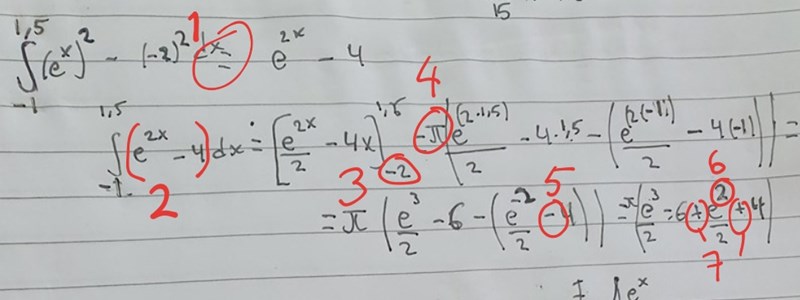 15
1,5 1
∫(eˣ)² - (-2)² dx = e²ˣ - 4
-1
4
1,5 1,5
∫(e²ˣ - 4)dx = [e²ˣ/2 - 4x] -π(e^(2·1,5)/2 - 4·1,5 - (e^(2(-1))/2 - 4(-1))) =
-1 -2
2 3 5 6
= π(e³/2 - 6 - (e⁻²/2 - 4)) = π(e³/2 - 6 + e²/2 + 4)
7